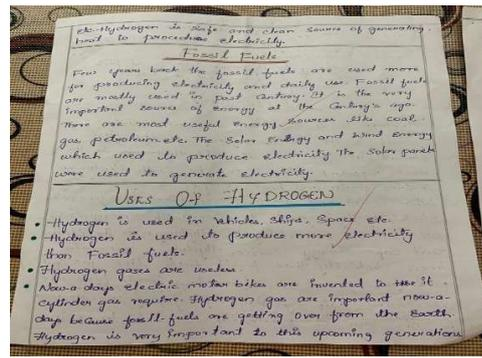 etc. Hydrogen is safe and clean source of generating
heat to procedure electricity.
Fossil Fuels
Few years back the fossil fuels are used more
for producing electricity and daily use. Fossil fuels
are mostly used in past Century. It is the very
important source of energy at the Century's ago.
There are most useful energy sources like coal,
gas, petroleum etc. The Solar Energy and Wind Energy
which used to produce electricity The Solar panels
were used to generate electricity.
USES OF HYDROGEN
Hydrogen is used in Vehicles, Ships, Space etc.
Hydrogen is used to produce more electricity
than Fossil fuels.
Hydrogen gases are useless
Now-a days electric motor bikes are invented to it
Cylinder gas require. Hydrogen gas are important now-a-
days because fossil-fuels are getting over from the Earth.
Hydrogen is very important to this upcoming generations